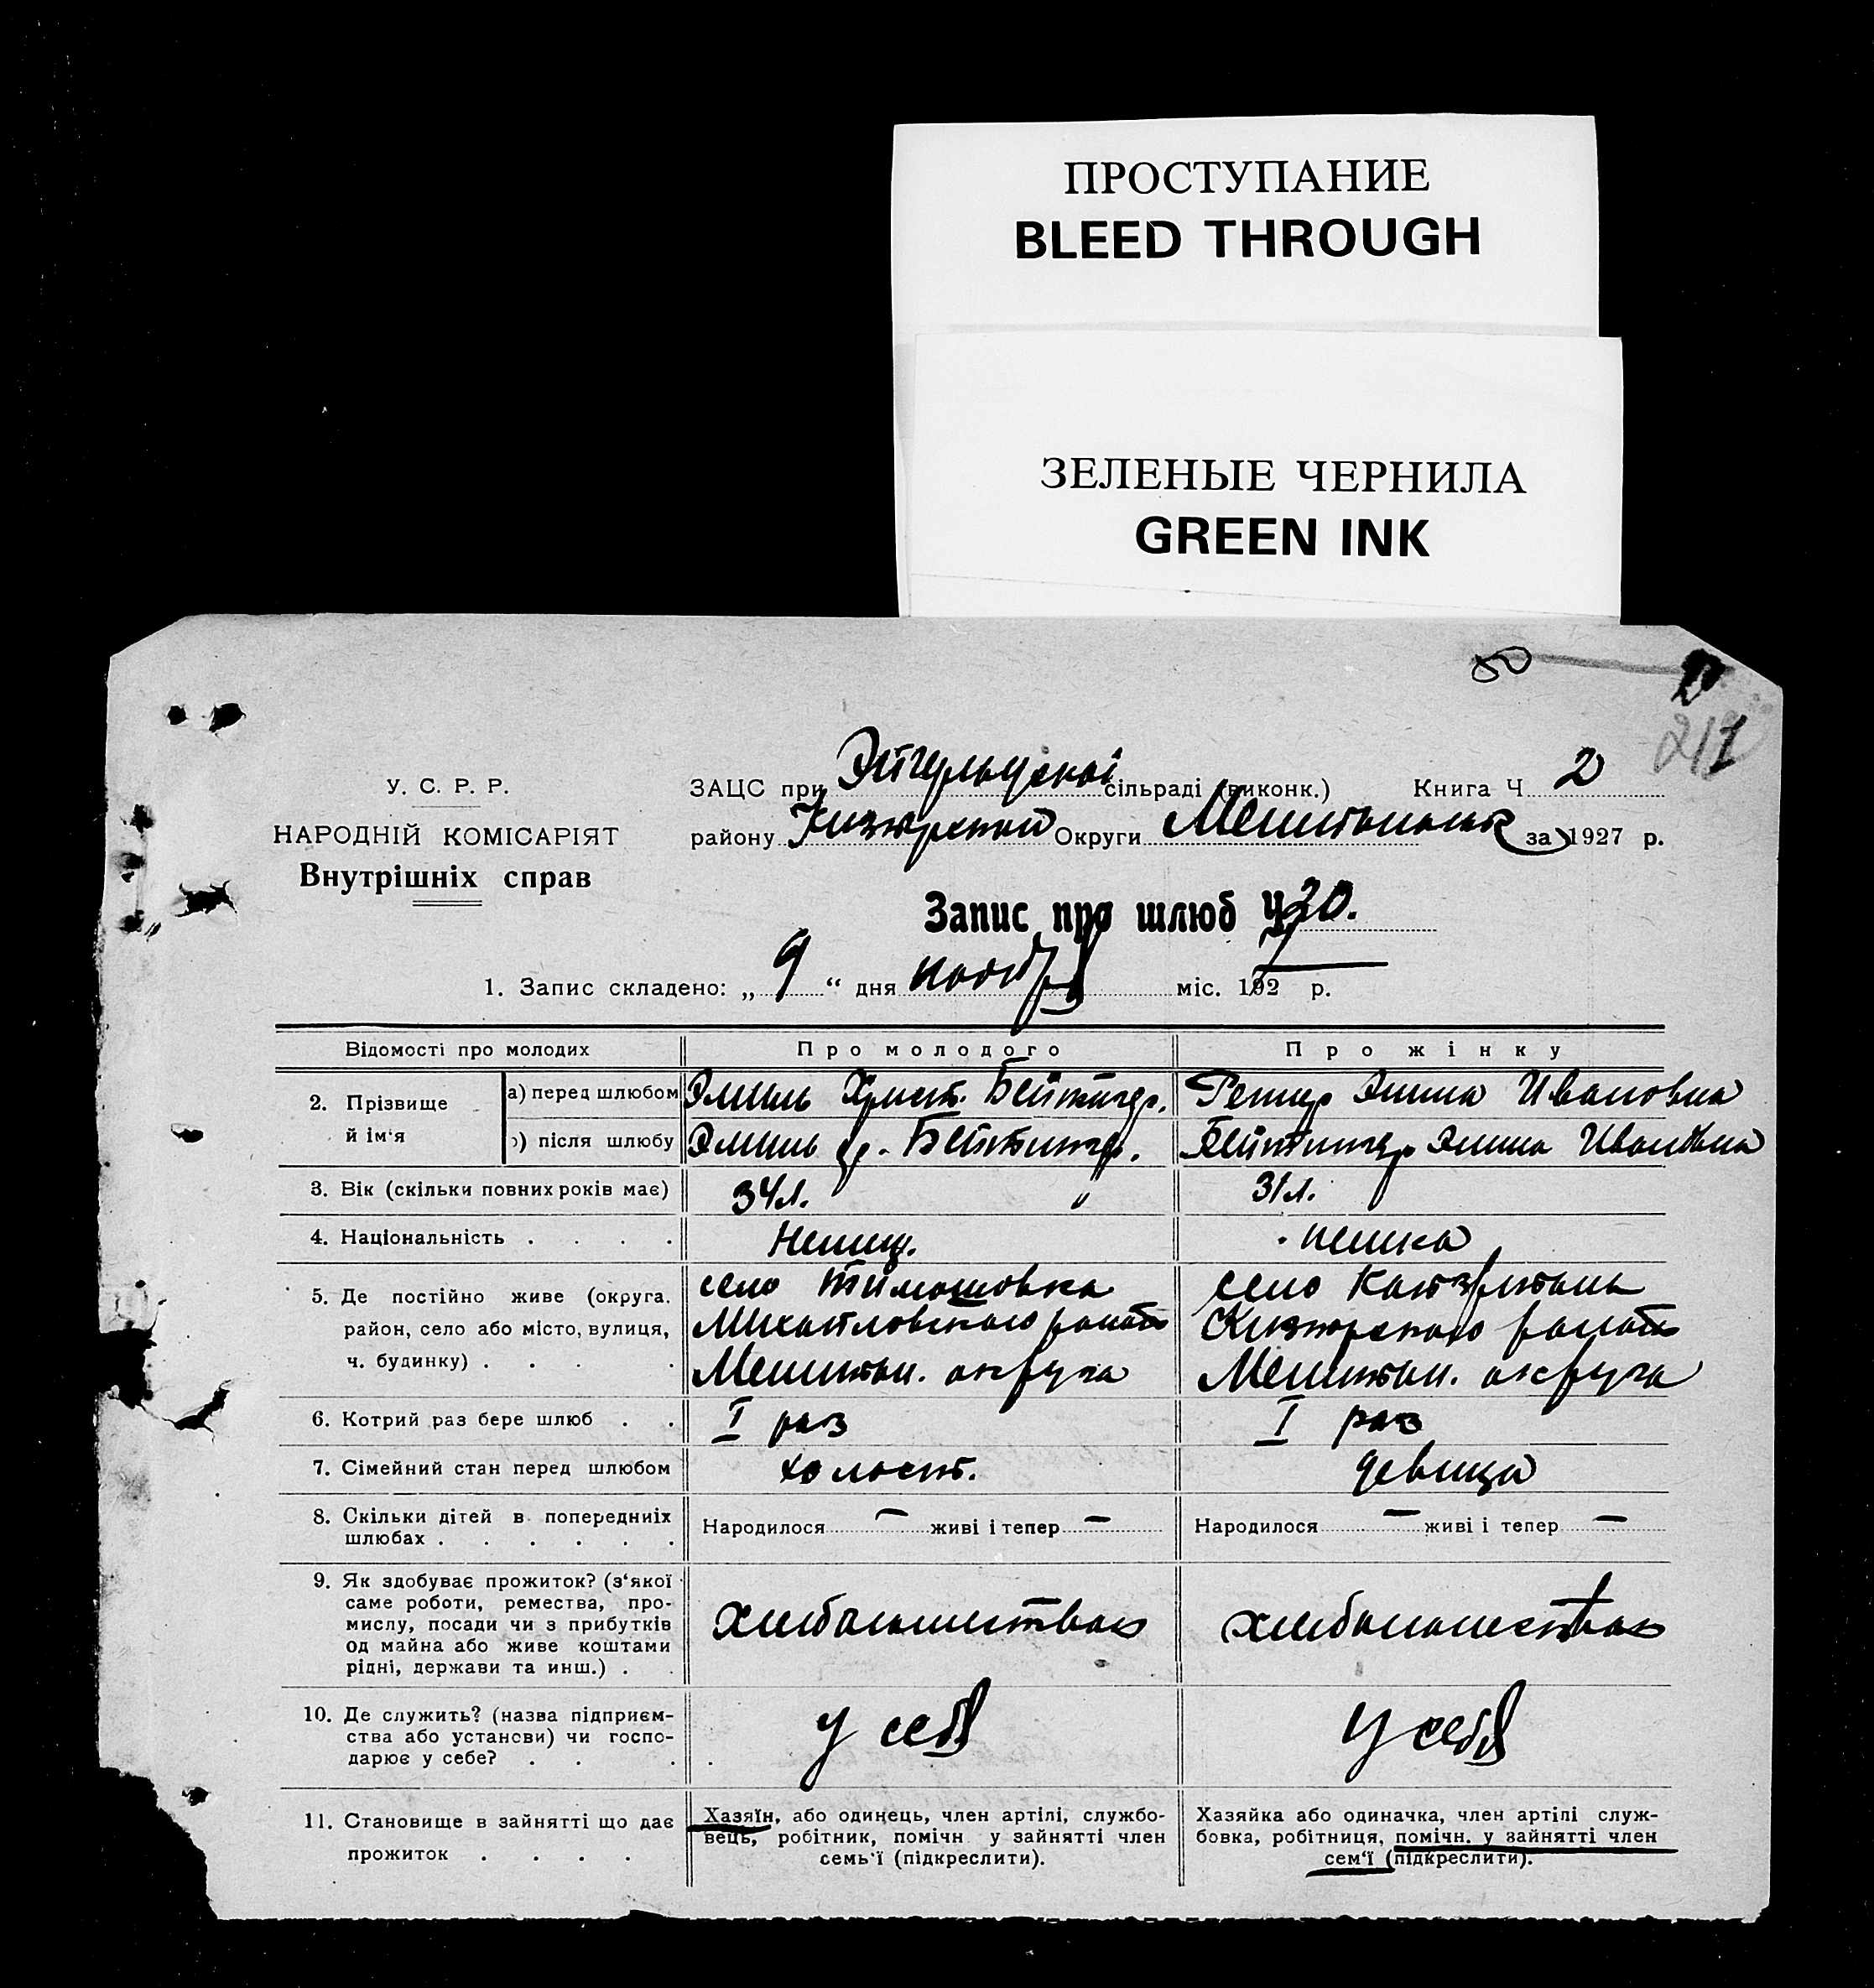 ПРОСТУПАНИЕ
BLEED THROUGH
ЗЕЛЕНЫЕ ЧЕРНИЛА
GREEN INK
50
2
У. С. Р. Р.
НАРОДНІЙ КОМІСАРІЯТ
Внутрішніх справ
ЗАЦС при сільраді (виконк.) Книга Ч. 2
району Округи за 1927 р.
Запис про шлюб Ч. 20.
1. Запис складено: „ 9 “ дня ноября міс. 192 7 р.
Відомості про молодих
Про молодого
Про жінку
2. Прізвище й ім‘я
а) перед шлюбом
Эмиль Христ. Бейтингер.
Эмма Ивановна
) після шлюбу
Эмиль Хр. Бейтингер.
Бейтингер Эмма Ивановна
3. Вік (скільки повних років має)
34 л. "
31 л.
4. Національність . . . .
Немец.
немка
5. Де постійно живе (округа, район, село або місто, вулиця, ч. будинку) . . .
село Тимошовка
Михайловского района
Мелитоп. округа
село
района
Мелитоп. округа
6. Котрий раз бере шлюб . .
I раз
I раз
7. Сімейний стан перед шлюбом
холост.
девица
8. Скільки дітей в попередниіх шлюбах . . . . . .
Народилося — живі і тепер —
Народилося — живі і тепер —
9. Як здобуває прожиток? (з‘якої
саме роботи, ремества, про-
мислу, посади чи з прибутків
од майна або живе коштами
рідні, держави та инш.) . .
хлебопашеством
хлебопашеством
10. Де служить? (назва підприєм-
ства або установи) чи госпо-
дарює у себе? . . .
у себя
у себя
11. Становище в зайнятті що дає
прожиток . . . .
Хазяїн, або одинець, член артілі, службо-
вець, робітник, помічн. у зайнятті член
семь‘ї (підкреслити).
Хазяйка або одиначка, член артілі служ-
бовка, робітниця, помічн. у зайнятті член
сем‘ї (підкреслити).